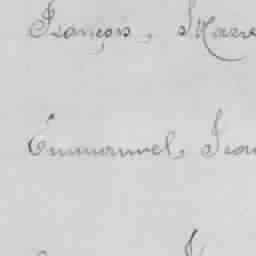 François, Marie
Emmanuel, Jean